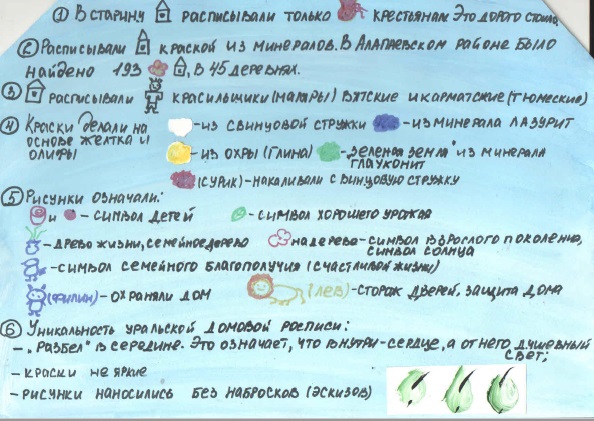 ① В старину расписывали только крестьянам. Это дорого стоило.
② Расписывали краской из минералов. В Алапаевском районе было
найдено 193 , в 45 деревнях.
③ расписывали красильщики (маляры) вятские и карматские (тюмеские)
④ Краски делали на основе желтка и олифы
-из свинцовой стружки -из минерала лазурит
-из охры (глина) -"зеленая земля" из минерала глауконит
(сурик)-накаливали свинцовую стружку
⑤ Рисунки означали:
и - символ детей - символ хорошего урожая
-древо жизни, семейное дерево на дереве-символ взрослого поколения, символ солнца
-символ семейного благополучия (счастливой жизни)
(филин)-охраняли дом (лев)-сторож дверей, защита дома
⑥ Уникальность уральской домовой росписи:
- „разбел" в середине. Это означает, что внутри-сердце, а от него душевный свет;
- краски не яркие
- рисунки наносились без набросков (эскизов)